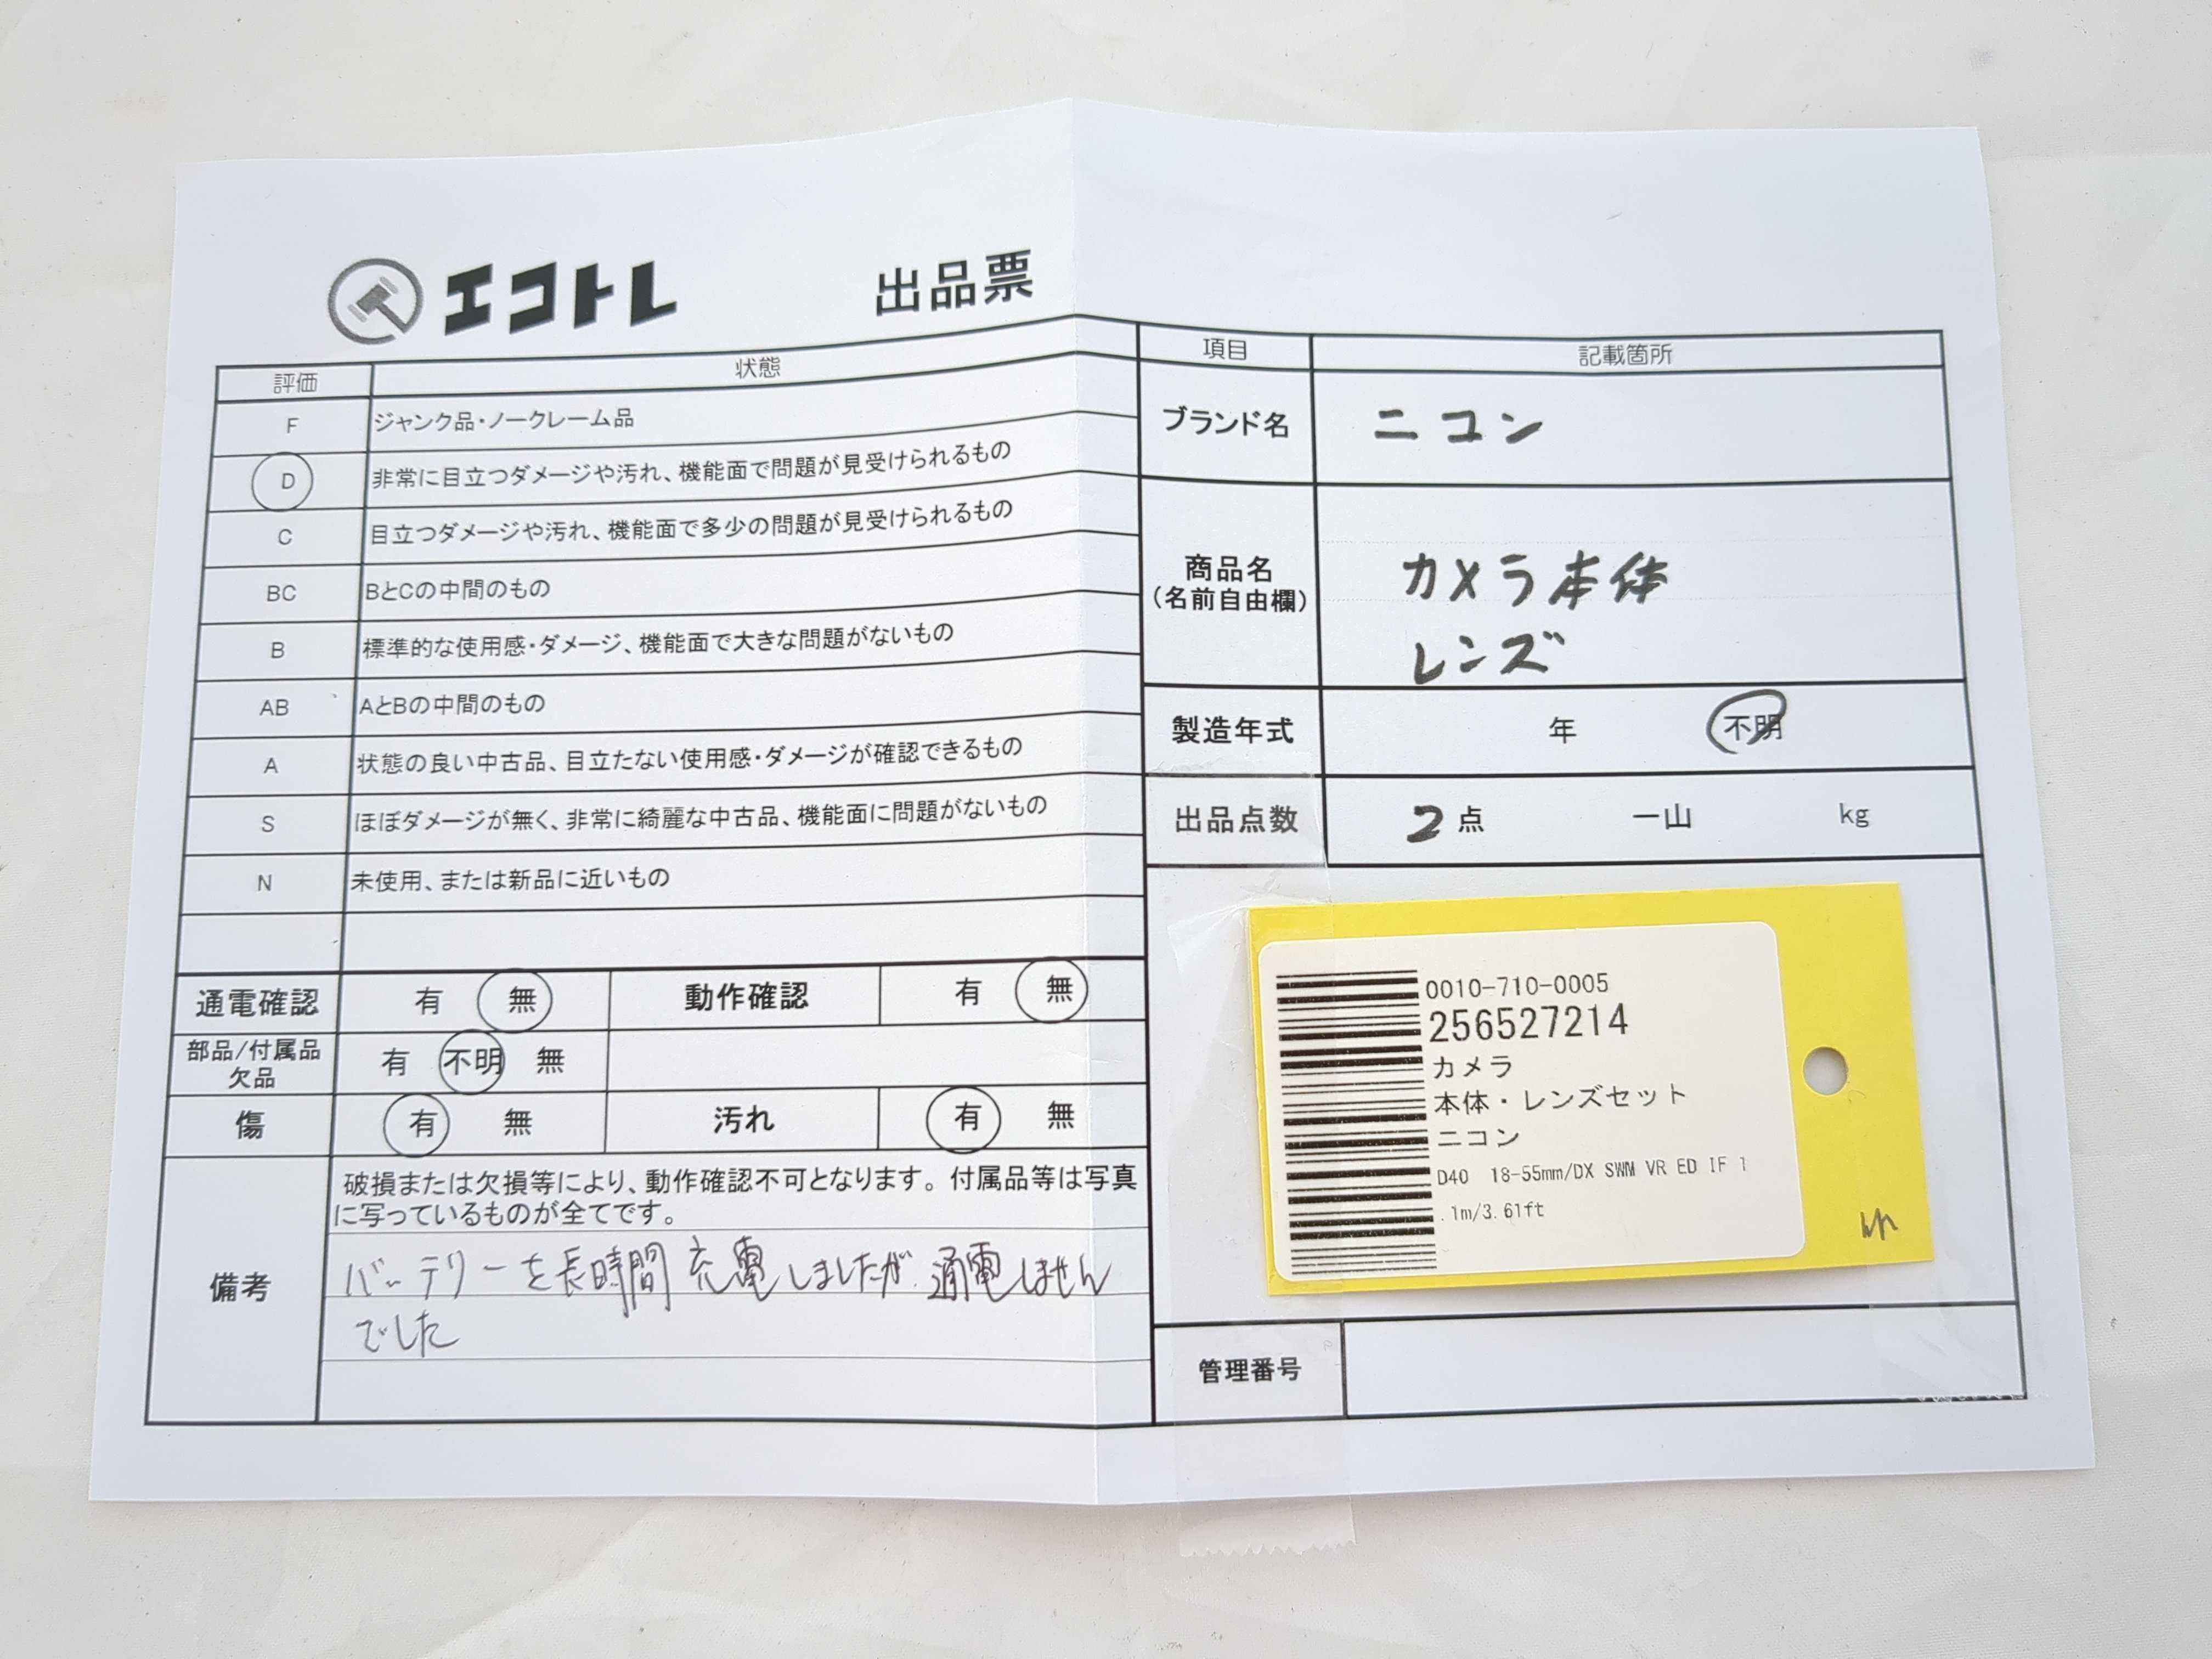 エコトレ 出品票
評価 状態
F ジャンク品・ノークレーム品
D 非常に目立つダメージや汚れ、機能面で問題が見受けられるもの
C 目立つダメージや汚れ、機能面で多少の問題が見受けられるもの
BC BとCの中間のもの
B 標準的な使用感・ダメージ、機能面で大きな問題がないもの
AB AとBの中間のもの
A 状態の良い中古品、目立たない使用感・ダメージが確認できるもの
S ほぼダメージが無く、非常に綺麗な中古品、機能面に問題がないもの
N 未使用、または新品に近いもの
通電確認 有 無 動作確認 有 無
部品/付属品
欠品 有 不明 無
傷 有 無 汚れ 有 無
備考
破損または欠損等により、動作確認不可となります。付属品等は写真
に写っているものが全てです。
バッテリーを長時間充電しましたが、通電しません
でした
項目 記載箇所
ブランド名 ニコン
商品名
(名前自由欄)
カメラ本体
レンズ
製造年式 年 不明
出品点数 2点 一山 kg
0010-710-0005
256527214
カメラ
本体・レンズセット
ニコン
D40 18-55mm/DX SWM VR ED IF 1
.1m/3.61ft
管理番号